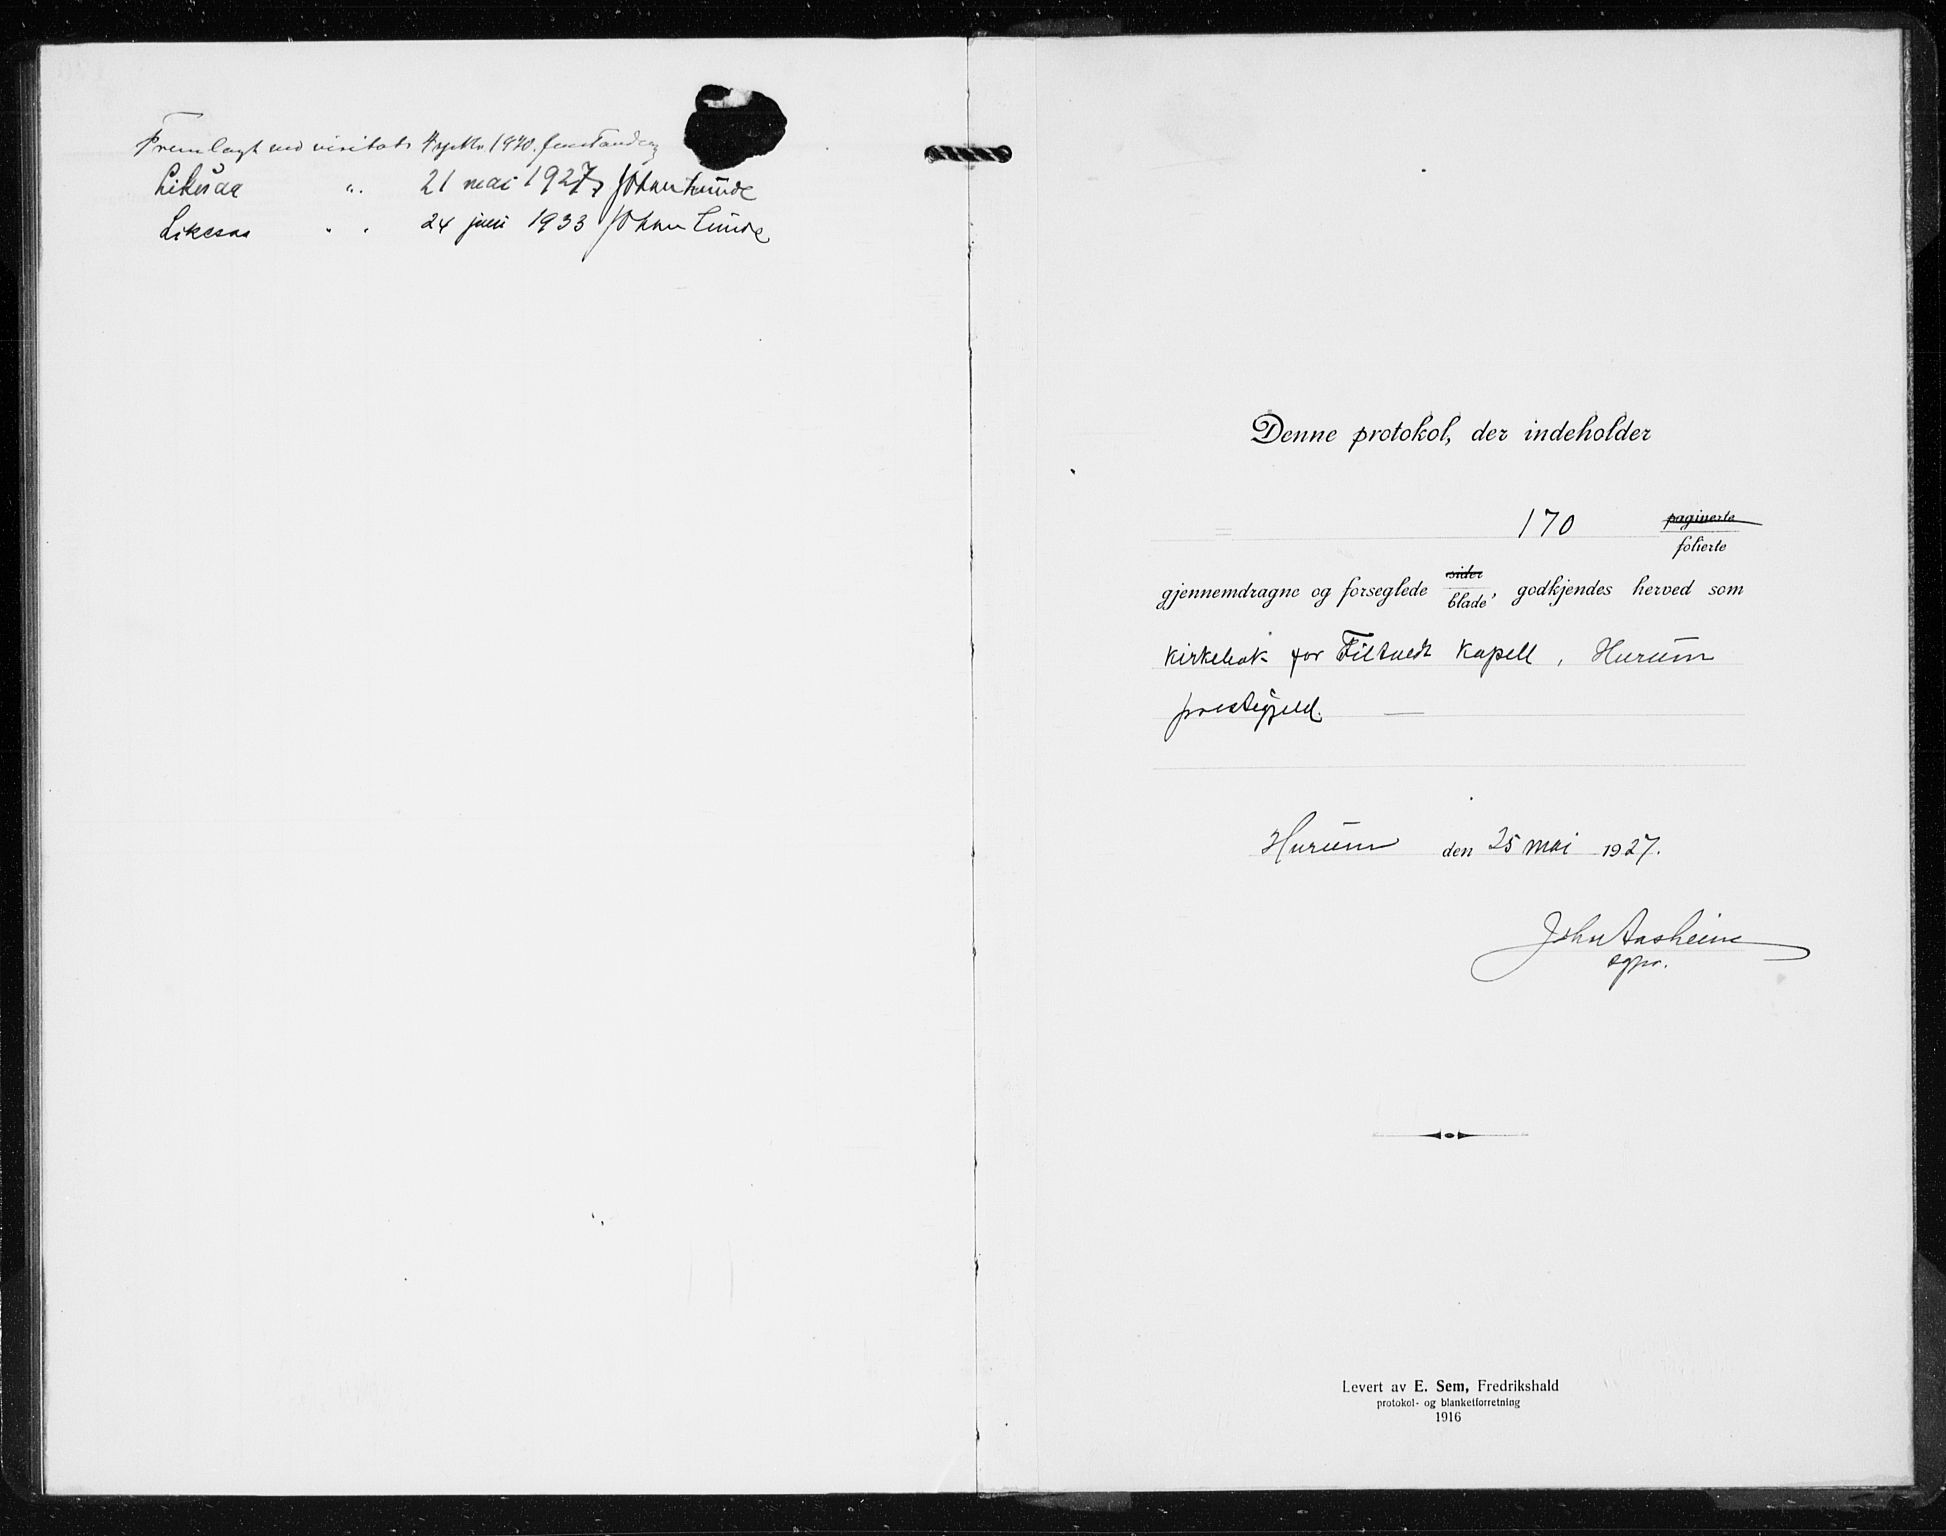 Fremlagt ved visitats 1920.
Likesaa " . 21 mai 1927, Johan Lunde
Likesaa " . 24 juni 1933 Johan Lunde
Denne protokol, der indeholder
170 paginerte
folierte
gjennemdragne og forseglede sider
blade, godkjendes herved som
kirkebok for Filtvedt Kapell, Hurum
prestegjeld. —
Hurum den 25 mai 1927.
John Aasheim
sgpr.
Levert av E. Sem, Fredrikshald
protokol- og blanketforretning
1916